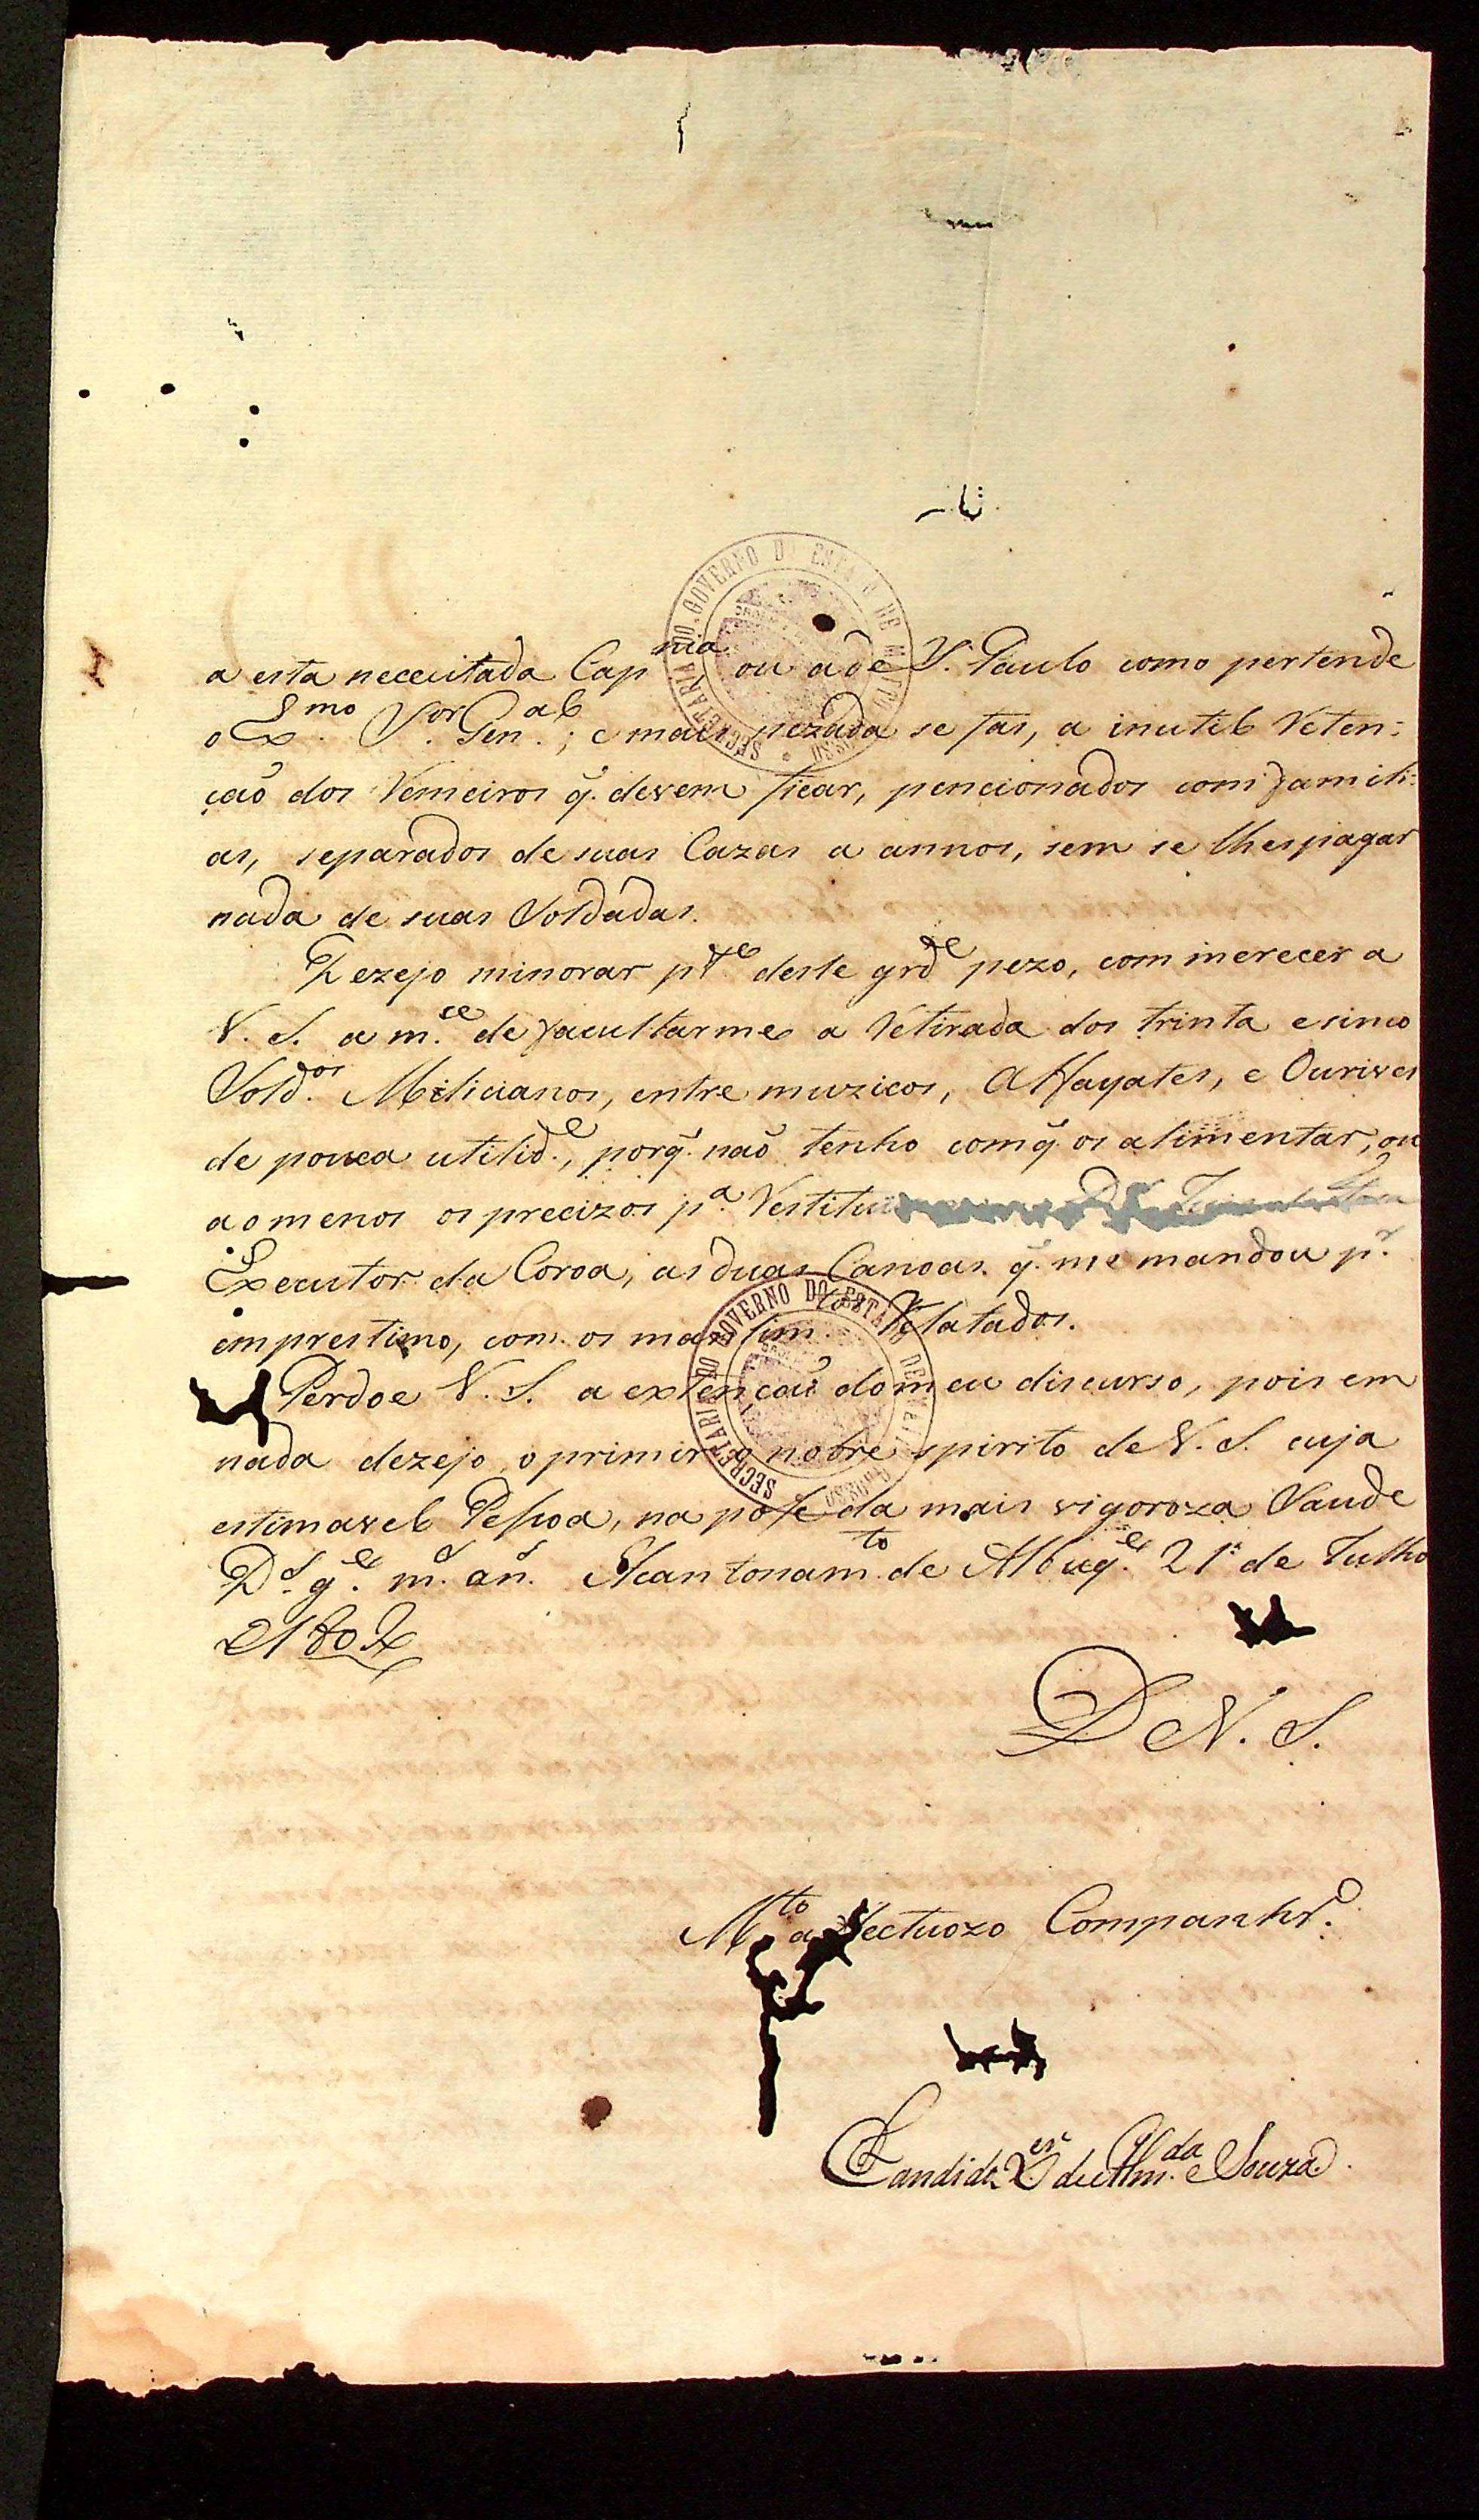 a esta nececitada Cap.nia ou a de S. Paulo como pertende
o Ex.mo S.or Gen.al; e mais pezada se fas, a inutil Reten:
çaõ dos Remeiros q̃. devem ficar, pencionados com famili:
as, separados de suas Cazas a annos, sem se lhes pagar
nada de suas Soldadas.
Dezejo minorar p.te deste grd.e pezo, com merecer a
V. S. a m.ce de facultarme a Retirada dos trinta e sinco
Sold.os Milicianos, entre muzicos, Alfayates, e Ourives
de pouca utilid.e, porq̃. naõ tenho com q̃ os alimentar, ou
ao menos os precizos p.a Restitui
Executor da Coroa, as duas Canoas q̃. me mandou p.r
emprestimo, com os mais Relatados.
Perdoe V. S. a extençaõ do meu discurso, pois em
nada dezejo oprimir o nobre spirito de V. S. cuja
estimavel Pessoa, na posse da mais vigoroza Saude
D.s g.e m.s an.s Acantonam.to de Albuq.e 21 de Julho
180
De V. S.
M.to afectuozo Companhr.o
Candido X.er de Alm.da e Souza.
SECRETARIA DO GOVERNO DO ESTADO DE MATTO GROSSO
SECRETARIA DO GOVERNO DO ESTADO DE MATTO GROSSO